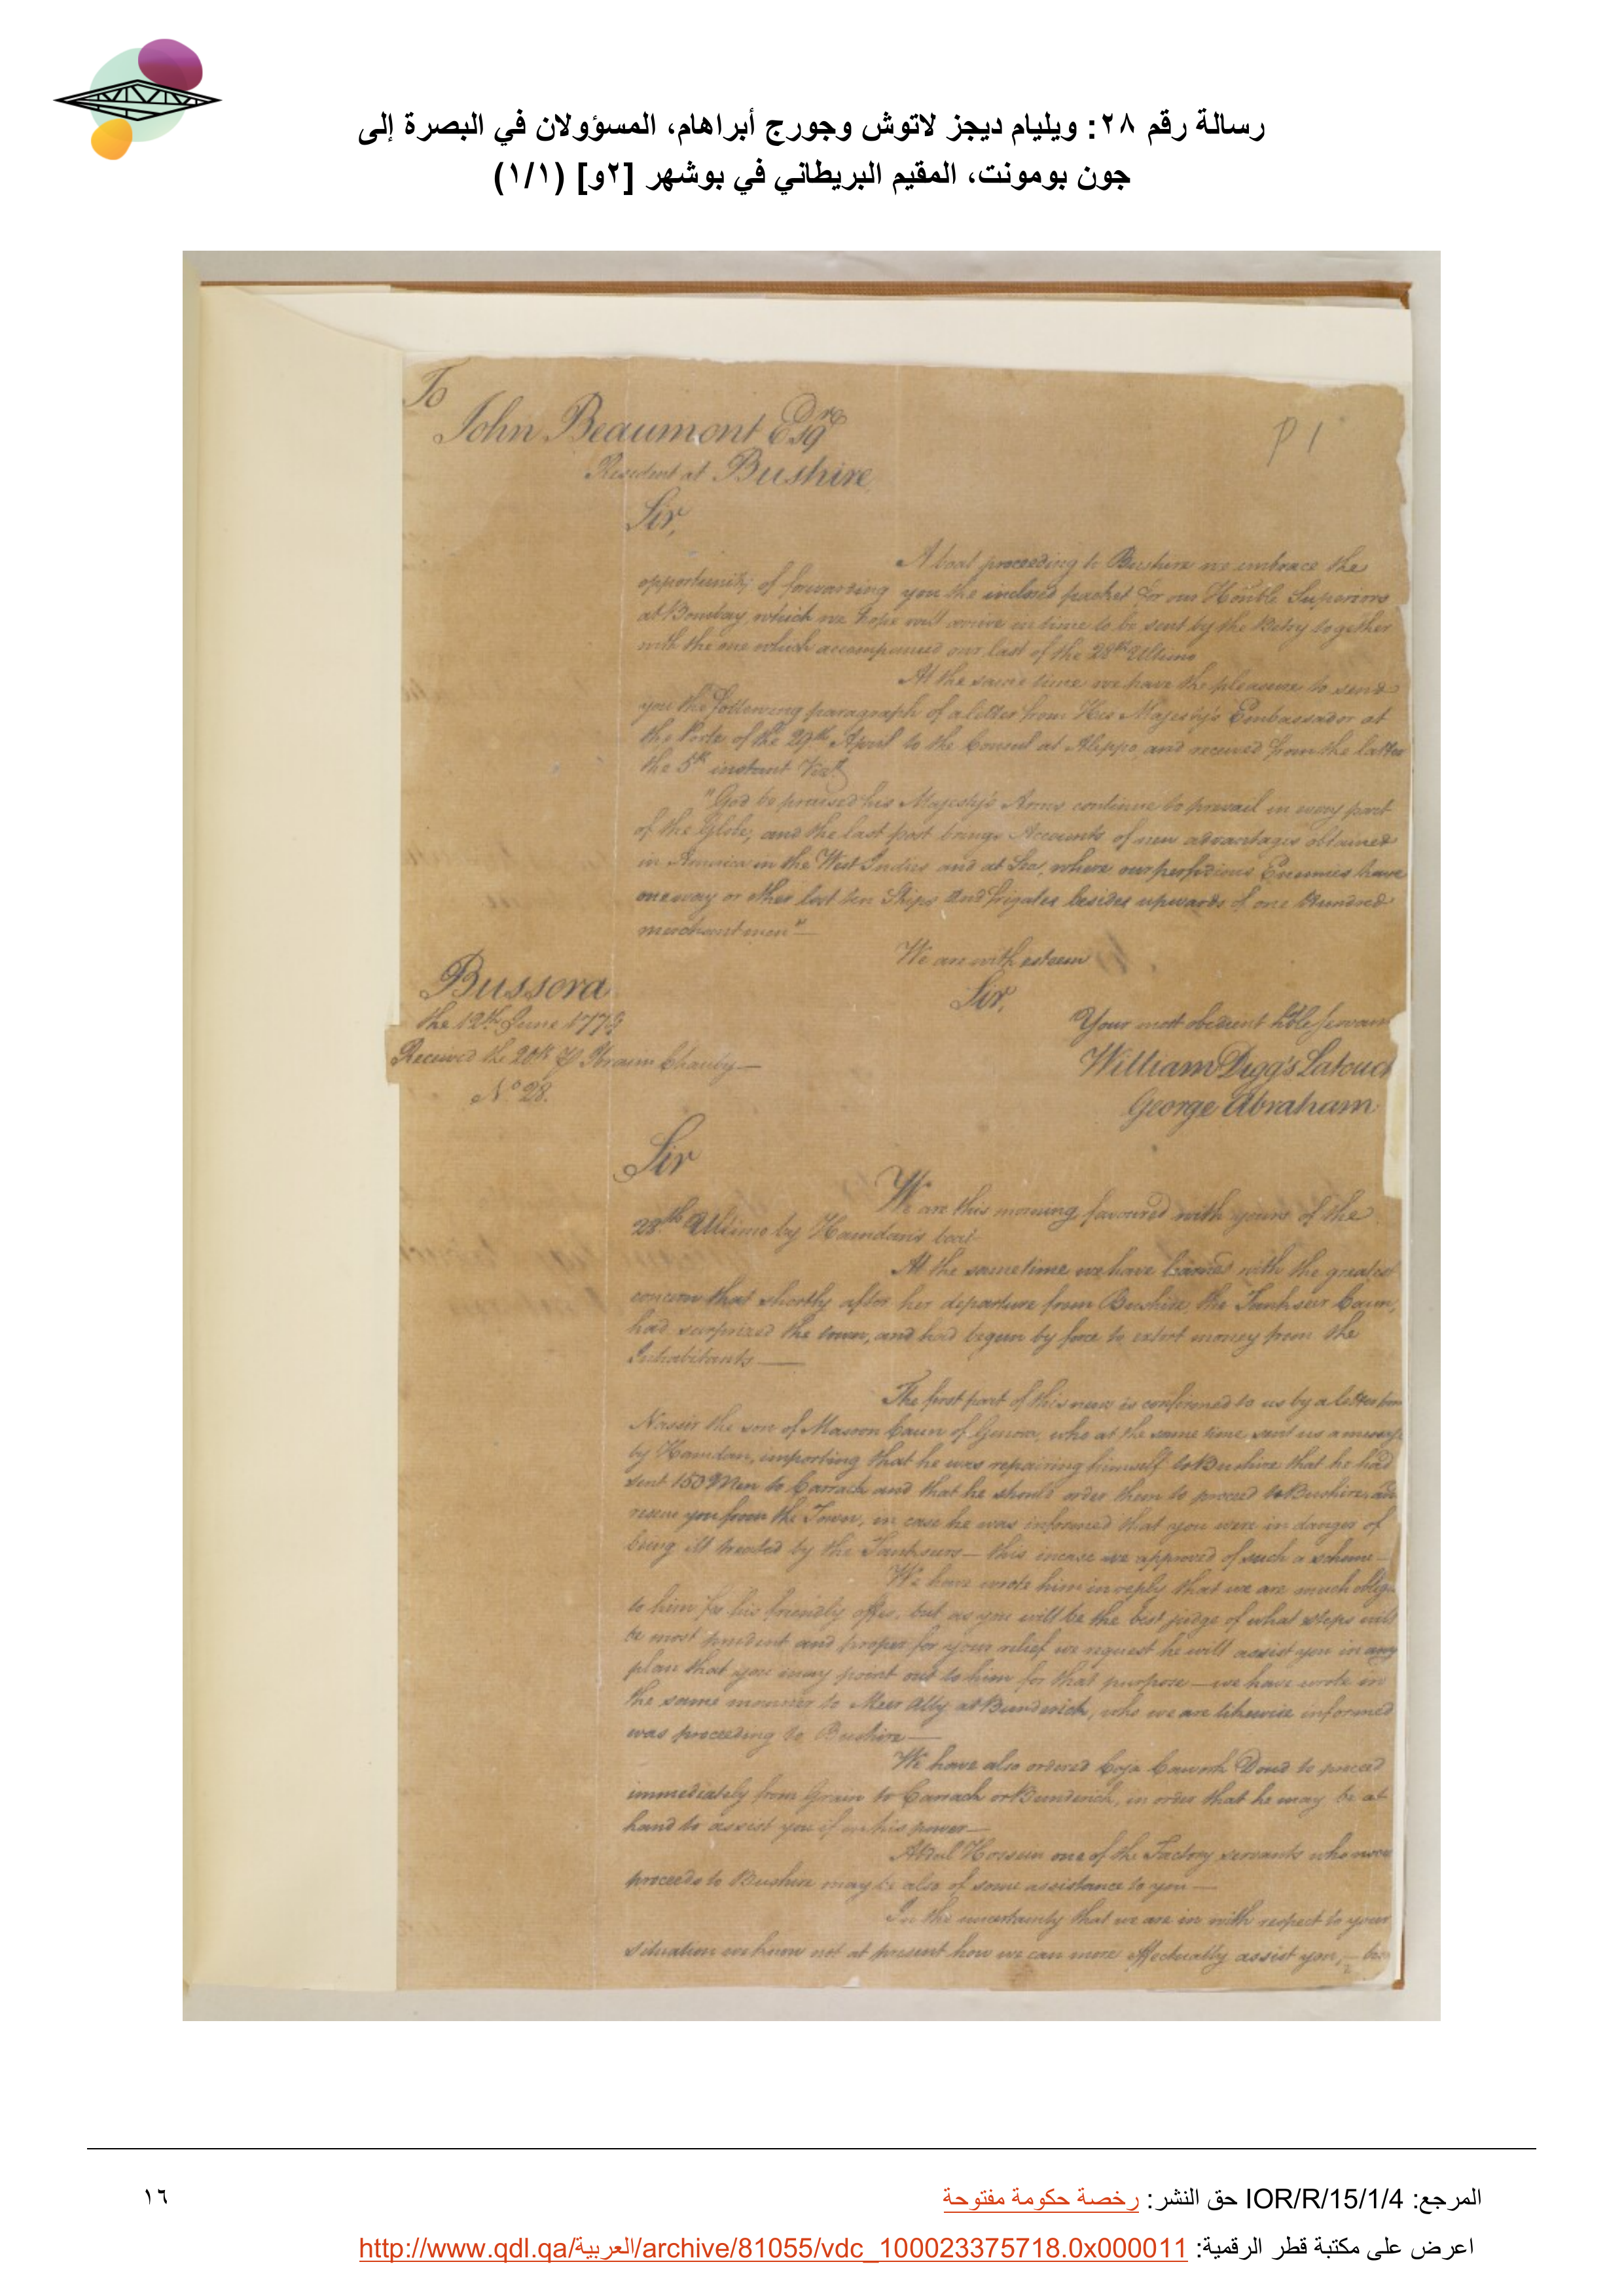 رسالة رقم ٢٨: ويليام ديجز لاتوش وجورج أبراهام، المسؤولان في البصرة إلى
جون بومونت، المقيم البريطاني في بوشهر [٢و] (١/١)
To
John Beaumont Esqre
P 1
Resident at Bushire
Sir,
A boat proceeding to Bushire we embrace the
opportunity of forwarding you the inclosed packet for our Honble Superiors
at Bombay, which we hope will arrive in time to be sent by the Betsy together
with the one which accompanied our last of the 28th Ultimo
At the same time we have the pleasure to send
you the following paragraph of a letter from His Majesty's Embassador at
the Porte of the 29th April to the Consul at Aleppo, and received from the latter
the 5th instant Vizt
"God be praised his Majesty's Arms continue to prevail in every part
of the Globe, and the last post brings Accounts of new advantages obtained
in America in the West Indies and at Sea, where our perfidious Enemies have
one way or other lost ten Ships and frigates besides upwards of one Hundred
merchantmen"
We are with esteem
Sir,
Bussora
the 12th June 1779
Your most obedient hble servan
Received the 20th Ibraim Chauby
William Digg's Latouch
No 28.
George Abraham
Sir
We are this morning favoured with yours of the
28th Ultimo by Hamdan's boat
At the same time we have learned with the greatest
concern that shortly after her departure from Bushire, the Tankseer Caun,
had surprized the town, and had begun by force to extort money from the
Inhabitants
The first part of this news is confirmed to us by a letter from
Nassir the son of Massoon Caun of Genova, who at the same time, sent us a message
by Hamdan, importing that he was repairing himself to Bushire that he had
sent 150 Men to Carrack and that he should order them to proceed to Bushire, and
rescue you from the Town, in case he was informed that you were in danger of
being ill treated by the Tankseers — this incase we approved of such a scheme —
We have wrote him in reply that we are much oblig
to him for his friendly offer, but as you will be the best judge of what steps will
be most prudent and proper for your relief we request he will assist you in any
plan that you may point out to him for that purpose — we have wrote in
the same manner to Meer Ally at Bunderick, who we are likewise informed
was proceeding to Bushire —
We have also ordered Coja Doud to proceed
immediately from Grain to Carrack or Bunderick, in order that he may be at
hand to assist you if in his power —
Abdul Hossein one of the Factory servants who now
proceeds to Bushire may be also of some assistance to you —
In the uncertainty that we are in with respect to your
situation we know not at present how we can more effectually assist you,
المرجع: IOR/R/15/1/4 حق النشر: رخصة حكومة مفتوحة
١٦
اعرض على مكتبة قطر الرقمية: http://www.qdl.qa/العربية/archive/81055/vdc_100023375718.0x000011